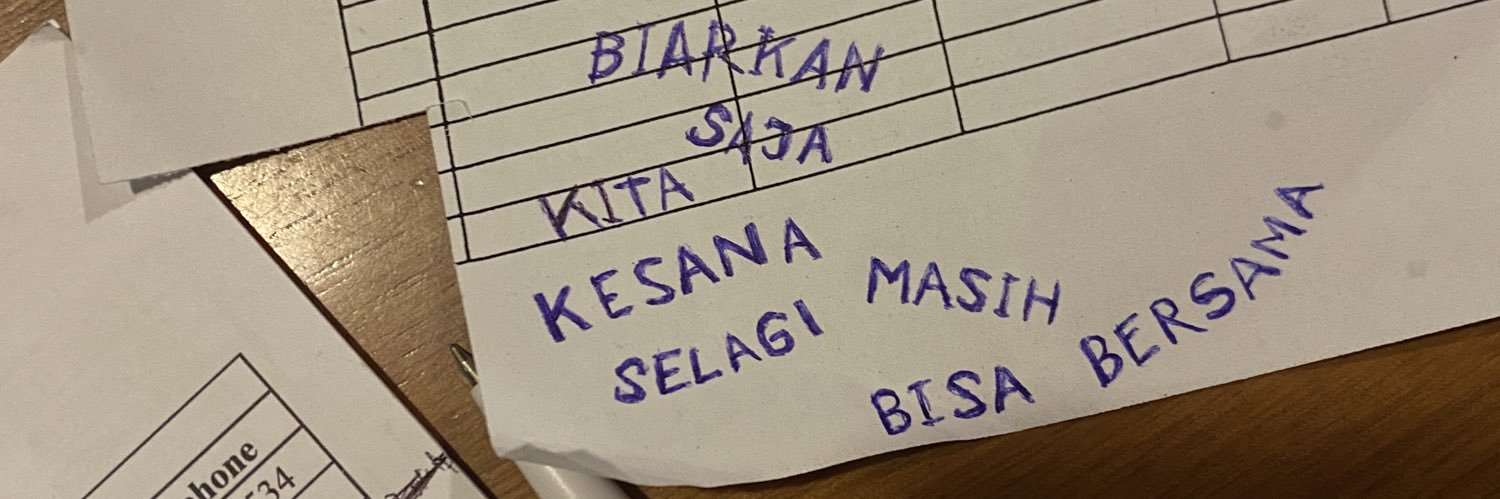 BIARKAN
SAJA
KITA
KESANA
SELAGI MASIH
BISA BERSAMA
hone
534